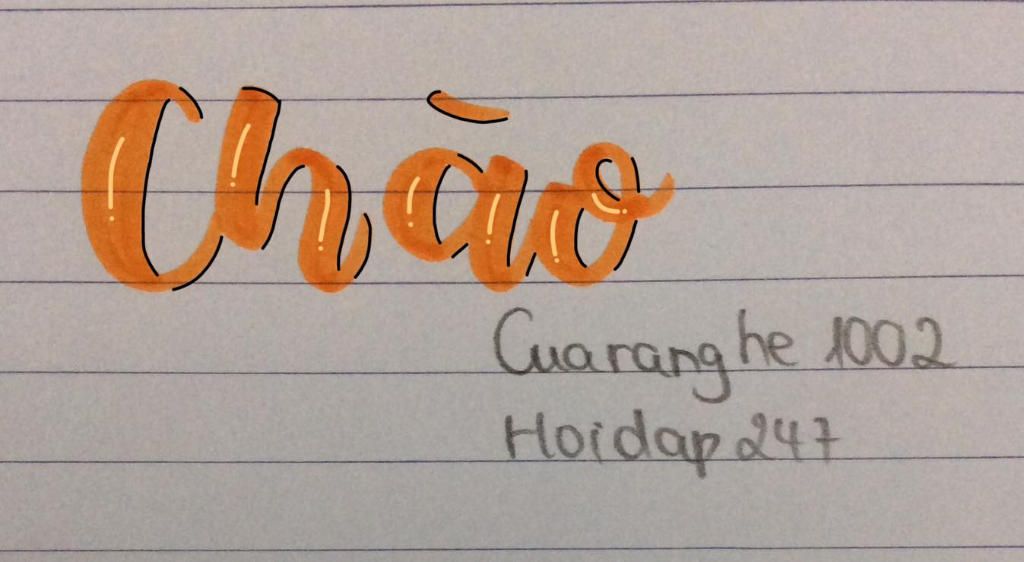 Chào
Cuaranghe 1002
Hoidap 247